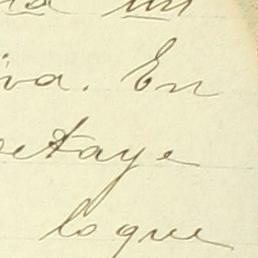 un
iva. En
etaye
loque